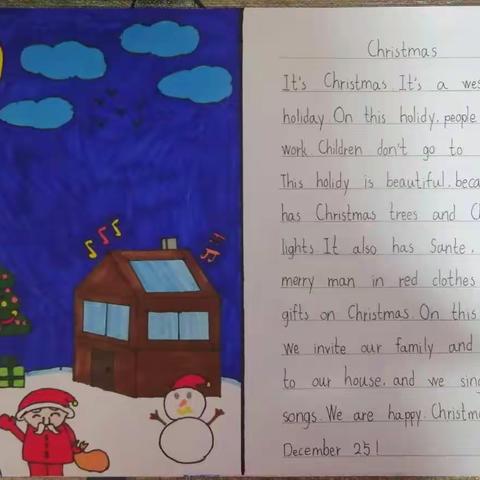 Christmas
It's Christmas. It's a wes
holiday. On this holidy, people
work. Children don't go to
This holidy is beautiful, beca
has Christmas trees and Ch
lights. It also has Sante,
merry man in red clothes
gifts on Christmas. On this
we invite our family and
to our house, and we sing
songs. We are happy. Christma
December 25!